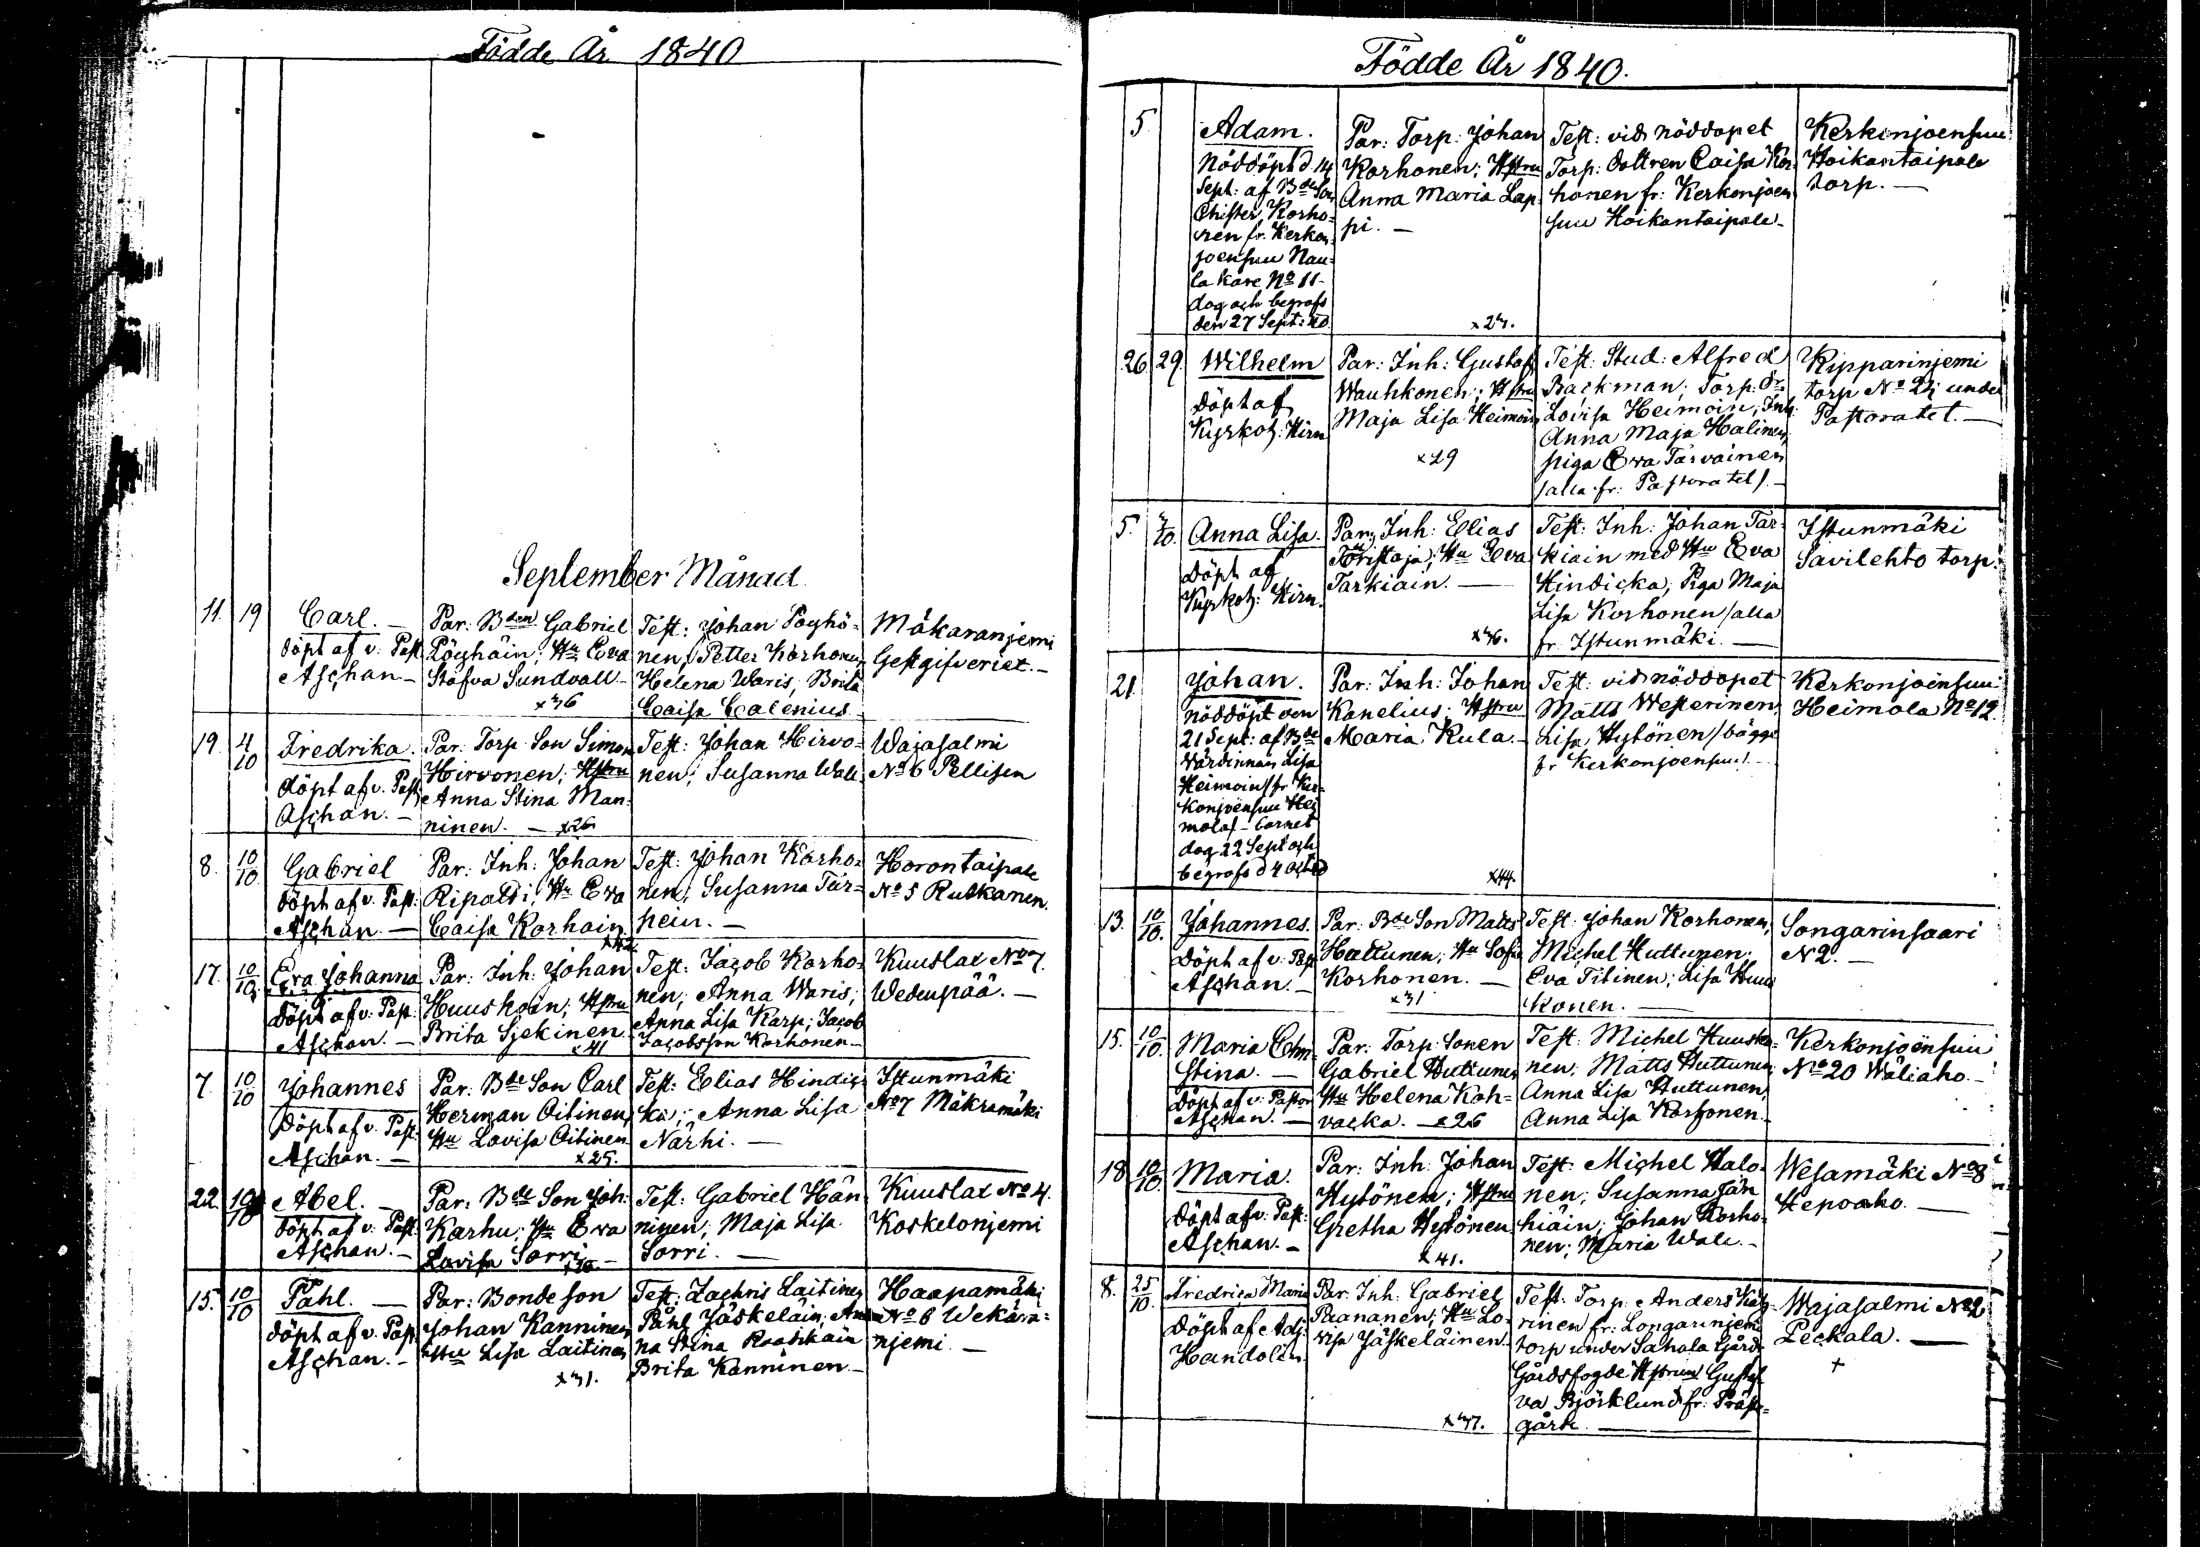 Födde År 1840
September Månad
11. 19 Carl. —
döpt af v. Past.
Aschan —
Par: Bden Gabriel
Pöyhöin; Hu Eva
Stafva Sundvall —
x36
Test: Johan Pöyhö-
nen, Petter Korhonen,
Helena Waris, Brita
Caisa Calenius
Mäkaranjemi
Gestgifveriet. —
19. 4/10 Fredrika.
döpt af v. Past.
Aschan. —
Par: Torp. Son Simon
Hirvonen; Hstru
Anna Stina Man-
ninen. — x26
Test: Johan Hirvo-
nen; Susanna Wale
Wajasalmi
No 6 Pellisen
8. 10/10 Gabriel
döpt af v. Past:
Aschan. —
Par: Inh: Johan
Ripatti; Hu Eva
Caisa Korhoin
x42
Test: Johan Korho-
nen; Susanna Tur-
pein. —
Horontaipale
No 5 Rutkanen.
17. 10/10 Eva Johanna
döpt af v. Past:
Aschan. —
Par: Inh: Johan
Huuskoin; Hstru
Brita Sjekinen
x41
Test: Jacob Korho-
nen; Anna Waris;
Anna Lisa Karp; Jacob
Jacobsson Korhonen —
Kuuslax No 7.
Wedenpää. —
7. 10/10 Johannes
döpt af v. Past:
Aschan. —
Par: Bde Son Carl
Herman Oitinen,
Hu Lovisa Oitinen
x25.
Test: Elias Hindic-
ka; Anna Lisa
Närhi. —
Istunmäki
No 7 Mäkramäki
22. 10/10 Abel. —
döpt af v. Past.
Aschan. —
Par: Bde Son Joh:
Karhu; Hu Eva
Lovisa Sorri —
Test: Gabriel Hän-
ninen; Maja Lisa
Sorri. —
Kuuslax No 4.
Koskelonjemi
15. 10/10 Påhl. —
döpt af v. Past.
Aschan. —
Par: Bondeson
Johan Kanninen
Hstru Lisa Laitinen
x31.
Test: Zachris Laitinen
Påhl Jäskeläin; An-
na Stina Raatikain
Brita Kanninen —
Haapamäki
No 6 Wekara-
njemi. —
Födde År 1840.
5. Adam.
Nöddöpt d. 14
Sept: af Bde Son
Chister Korho-
nen fr. Kerkon-
joensuu Nau-
lakare No 11 —
dog och begrofs
den 27 Sept: 40
Par: Torp: Johan
Korhonen; Hstru
Anna Maria Lap-
pi. —
x27.
Test: vid nöddopet
Torp: Dottren Caisa Kor-
honen fr: Kerkonjoen-
suu Hoikantaipale —
Kerkonjoensuu
Hoikantaipale
torp. —
26. 29. Wilhelm
Döpt af
Kyrkoh: Hirn
Par: Inh: Gustaf
Wauhkonen; Hstru
Maja Lisa Heimoin
x29
Test: Stud: Alfred
Backman; Torp: Dr
Lovisa Heimoin; Inh:
Anna Maja Halinen;
piga Eva Tarvainen
/alla fr: Pastoratet/. —
Kipparinjemi
torp No 22 under
Pastoratet. —
5. 4/10. Anna Lisa.
Döpt af
Kyrkoh: Hirn.
Par: Inh: Elias
Töristaja; Hu Eva
Tarkiain. —
x36.
Test: Inh: Johan Tar-
kiain med Hu Eva
Hindicka; Piga Maja
Lisa Korhonen /alla
fr: Istunmäki. —
Istunmäki
Savilehto torp.
21 Johan.
nöddöpt den
21 Sept: af Bde
Wärdinnan Lisa
Heimoin /fr Ker-
konjoensuu Hei-
mola/ — Barnet
dog 22 Sept och
begrofs d 4 Oct:
Par: Inh: Johan
Kanelius; Hstru
Maria Kula. —
x44.
Test: vid nöddopet
Matts Westerinen;
Lisa Hytönen /bägge
fr Kerkonjoensuu/. —
Kerkonjoensuu
Heimola No 12.
13. 10/10. Johannes.
Döpt af v: Past
Aschan. —
Par: Bde Son Matts
Huttunen; Hu Sofia
Korhonen. —
x31
Test: Johan Korhonen,
Michel Huttunen;
Eva Titinen; Lisa Huus-
konen. —
Songarinsaari
N 2. —
15. 10/10. Maria Chri-
stina. —
Döpt af v: Pastor
Aschan. —
Par: Torp: Sonen
Gabriel Huttunen
Hu Helena Koh-
vacka. — x26
Test: Michel Huusko-
nen; Matts Huttunen,
Anna Lisa Huttunen,
Anna Lisa Korhonen —
Kerkonjoensuu
No 20 Wäliaho. —
18 10/10. Maria.
Döpt af v: Past:
Aschan. —
Par: Inh: Johan
Hytönen; Hstru
Gretha Hytönen
x41.
Test: Michel Halo-
nen; Susanna Jän-
hiäin; Johan Korho-
nen; Maria Wale. —
Wesamäki No 8
Hepoaho. —
8. 25/10. Fredrica Maria
Döpt af Adj:
Handolin
Par: Inh: Gabriel
Paananen; Hu Lo-
visa Jäskeläinen.
x37.
Test: Torp: Anders Kär-
rinen fr: Longarinjemi
torp under Sahala Gård
Gårdsfogde Hstrun Gustaf-
va Björklund fr: Präst-
gård. —
Wajasalmi No 2
Peckala. —
+